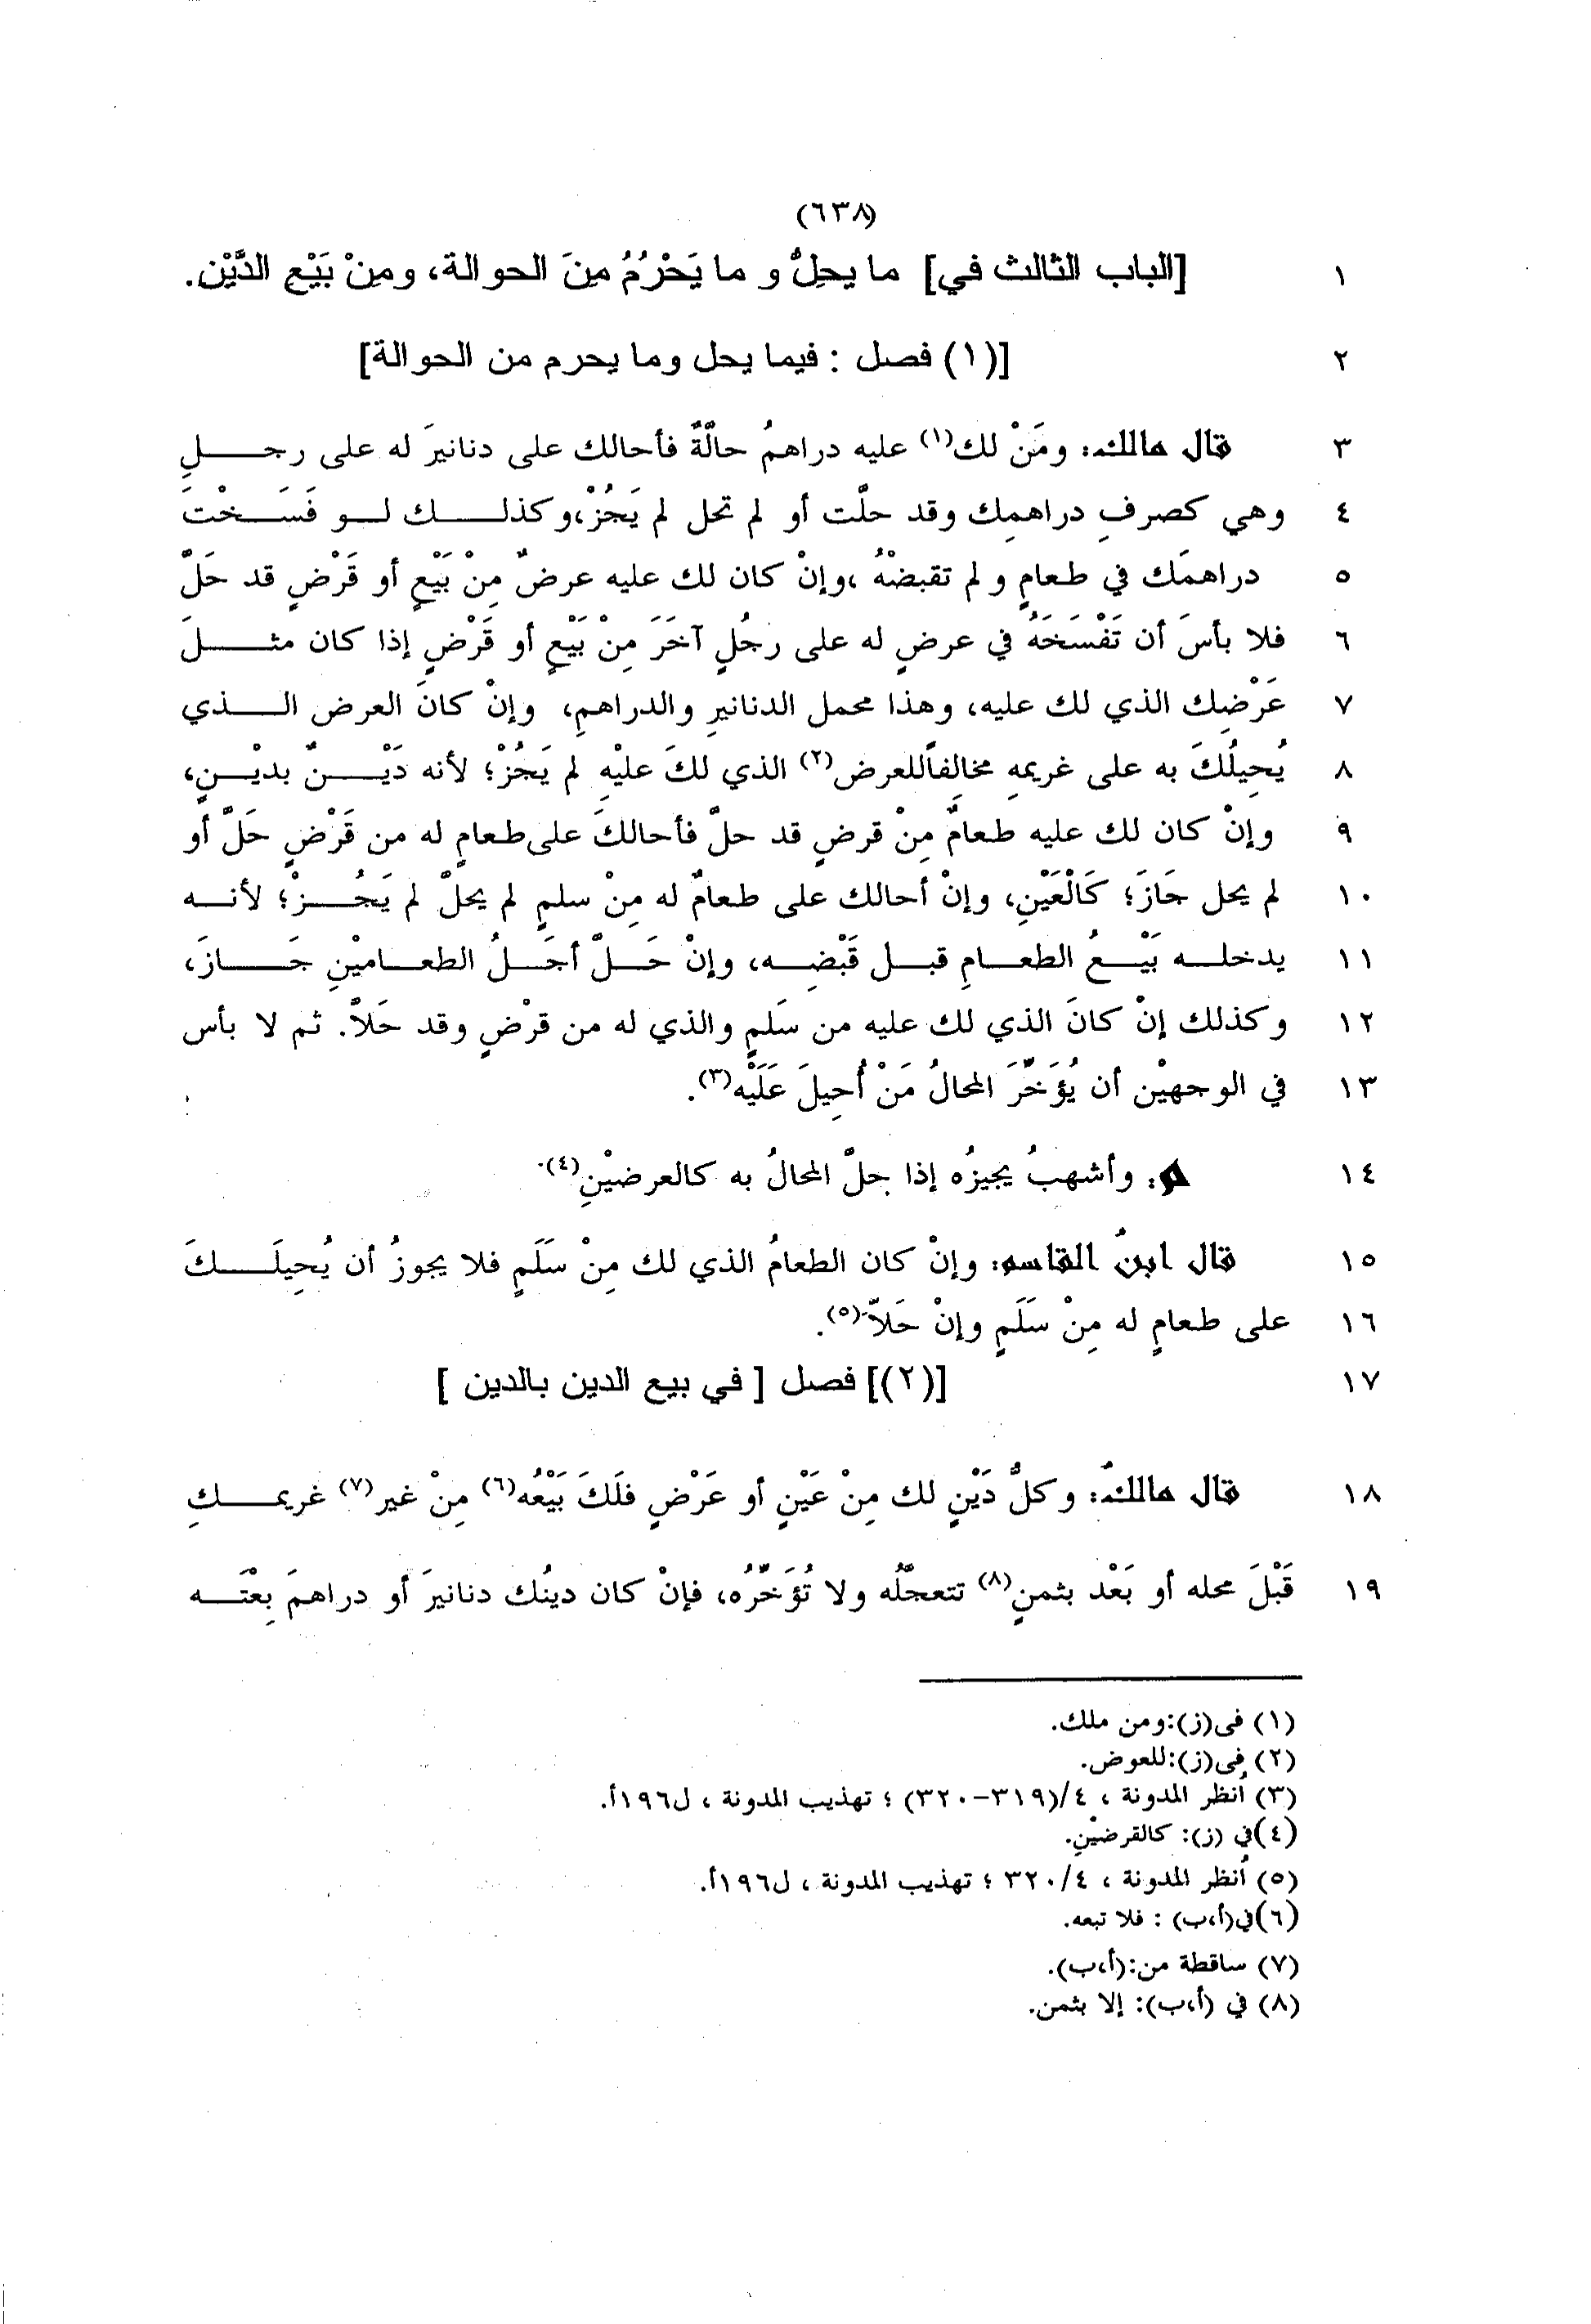 (٦٣٨)
١ [الباب الثالث في] ما يحِلُّ و ما يَحْرُمُ مِنَ الحوالة، ومِنْ بَيْعِ الدَّيْنِ.
٢ [(١) فصل : فيما يحل وما يحرم من الحوالة]
٣ قال مالك: ومَنْ لك(١) عليه دراهمُ حالَّةٌ فأحالك على دنانيرَ له على رجـــلٍ
٤ وهي كصرفِ دراهمِك وقد حلَّت أو لم تحل لم يَجُزْ،وكذلـــك لـــو فَسَـــخْتَ
٥ دراهمَك في طعامٍ و لم تقبضْهُ ،وإنْ كان لك عليه عرضٌ مِنْ بَيْعٍ أو قَرْضٍ قد حَلَّ
٦ فلا بأسَ أن تَفْسَخَهُ في عرضٍ له على رجُلٍ آخَرَ مِنْ بَيْعٍ أو قَرْضٍ إذا كان مثـــلَ
٧ عَرْضِك الذي لك عليه، وهذا محمل الدنانيرِ والدراهمِ، وإنْ كانَ العرض الـــذي
٨ يُحِيلُكَ به على غريمهِ مخالِفاًللعرض(٢) الذي لكَ عليْهِ لم يَجُزْ؛ لأنه دَيْـــنٌ بديْـــنٍ،
٩ وإنْ كان لك عليه طعامٌ مِنْ قرضٍ قد حلَّ فأحالكَ على طعامٍ له من قَرْضٍ حَلَّ أو
١٠ لم يحل جَازَ؛ كَالْعَيْنِ، وإنْ أحالك على طعامٌ له مِنْ سلمٍ لم يحلَّ لم يَجُـــزْ؛ لأنـــه
١١ يدخلـــه بَيْـــعُ الطعـــامِ قبـــل قَبْضِـــه، وإنْ حَـــلَّ أجَـــلُ الطعـــاميْنِ جَـــازَ،
١٢ وكذلك إنْ كانَ الذي لك عليه من سَلمٍ والذي له من قرْضٍ وقد حَلاَّ. ثم لا بأس
١٣ في الوجهيْن أن يُؤَخِّرَ المحالُ مَنْ أُحِيلَ عَلَيْه(٣).
١٤ م: وأشهبُ يجيزُه إذا حلَّ المحالُ به كالعرضيْنِ(٤).
١٥ قال ابنُ القاسم: وإنْ كان الطعامُ الذي لك مِنْ سَلَمٍ فلا يجوزُ أن يُحِيلَـــكَ
١٦ على طعامٍ له مِنْ سَلَمٍ وإنْ حَلاَّ(٥).
١٧ [(٢)] فصل [ في بيع الدين بالدين ]
١٨ قال مالكٌ: وكلُّ دَيْنٍ لك مِنْ عَيْنٍ أو عَرْضٍ فلَكَ بَيْعُه(٦) مِنْ غير(٧) غريمـــكِ
١٩ قَبْلَ محله أو بَعْد بثمنٍ(٨) تتعجّلُه ولا تُؤَخِّرُه، فإنْ كان دينُك دنانيرَ أو دراهمَ بِعْتَـــه
(١) فى(ز):ومن ملك.
(٢) فى(ز):للعوض.
(٣) أنظر المدونة ، ٤/(٣١٩-٣٢٠) ؛ تهذيب المدونة ، ل١٩٦أ.
(٤)في (ز): كالقرضيْنِ.
(٥) أنظر المدونة ، ٣٢٠/٤ ؛ تهذيب المدونة ، ل١٩٦أ.
(٦)في(أ،ب) : فلا تبعه.
(٧) ساقطة من:(أ،ب).
(٨) في (أ،ب): إلا بثمن.